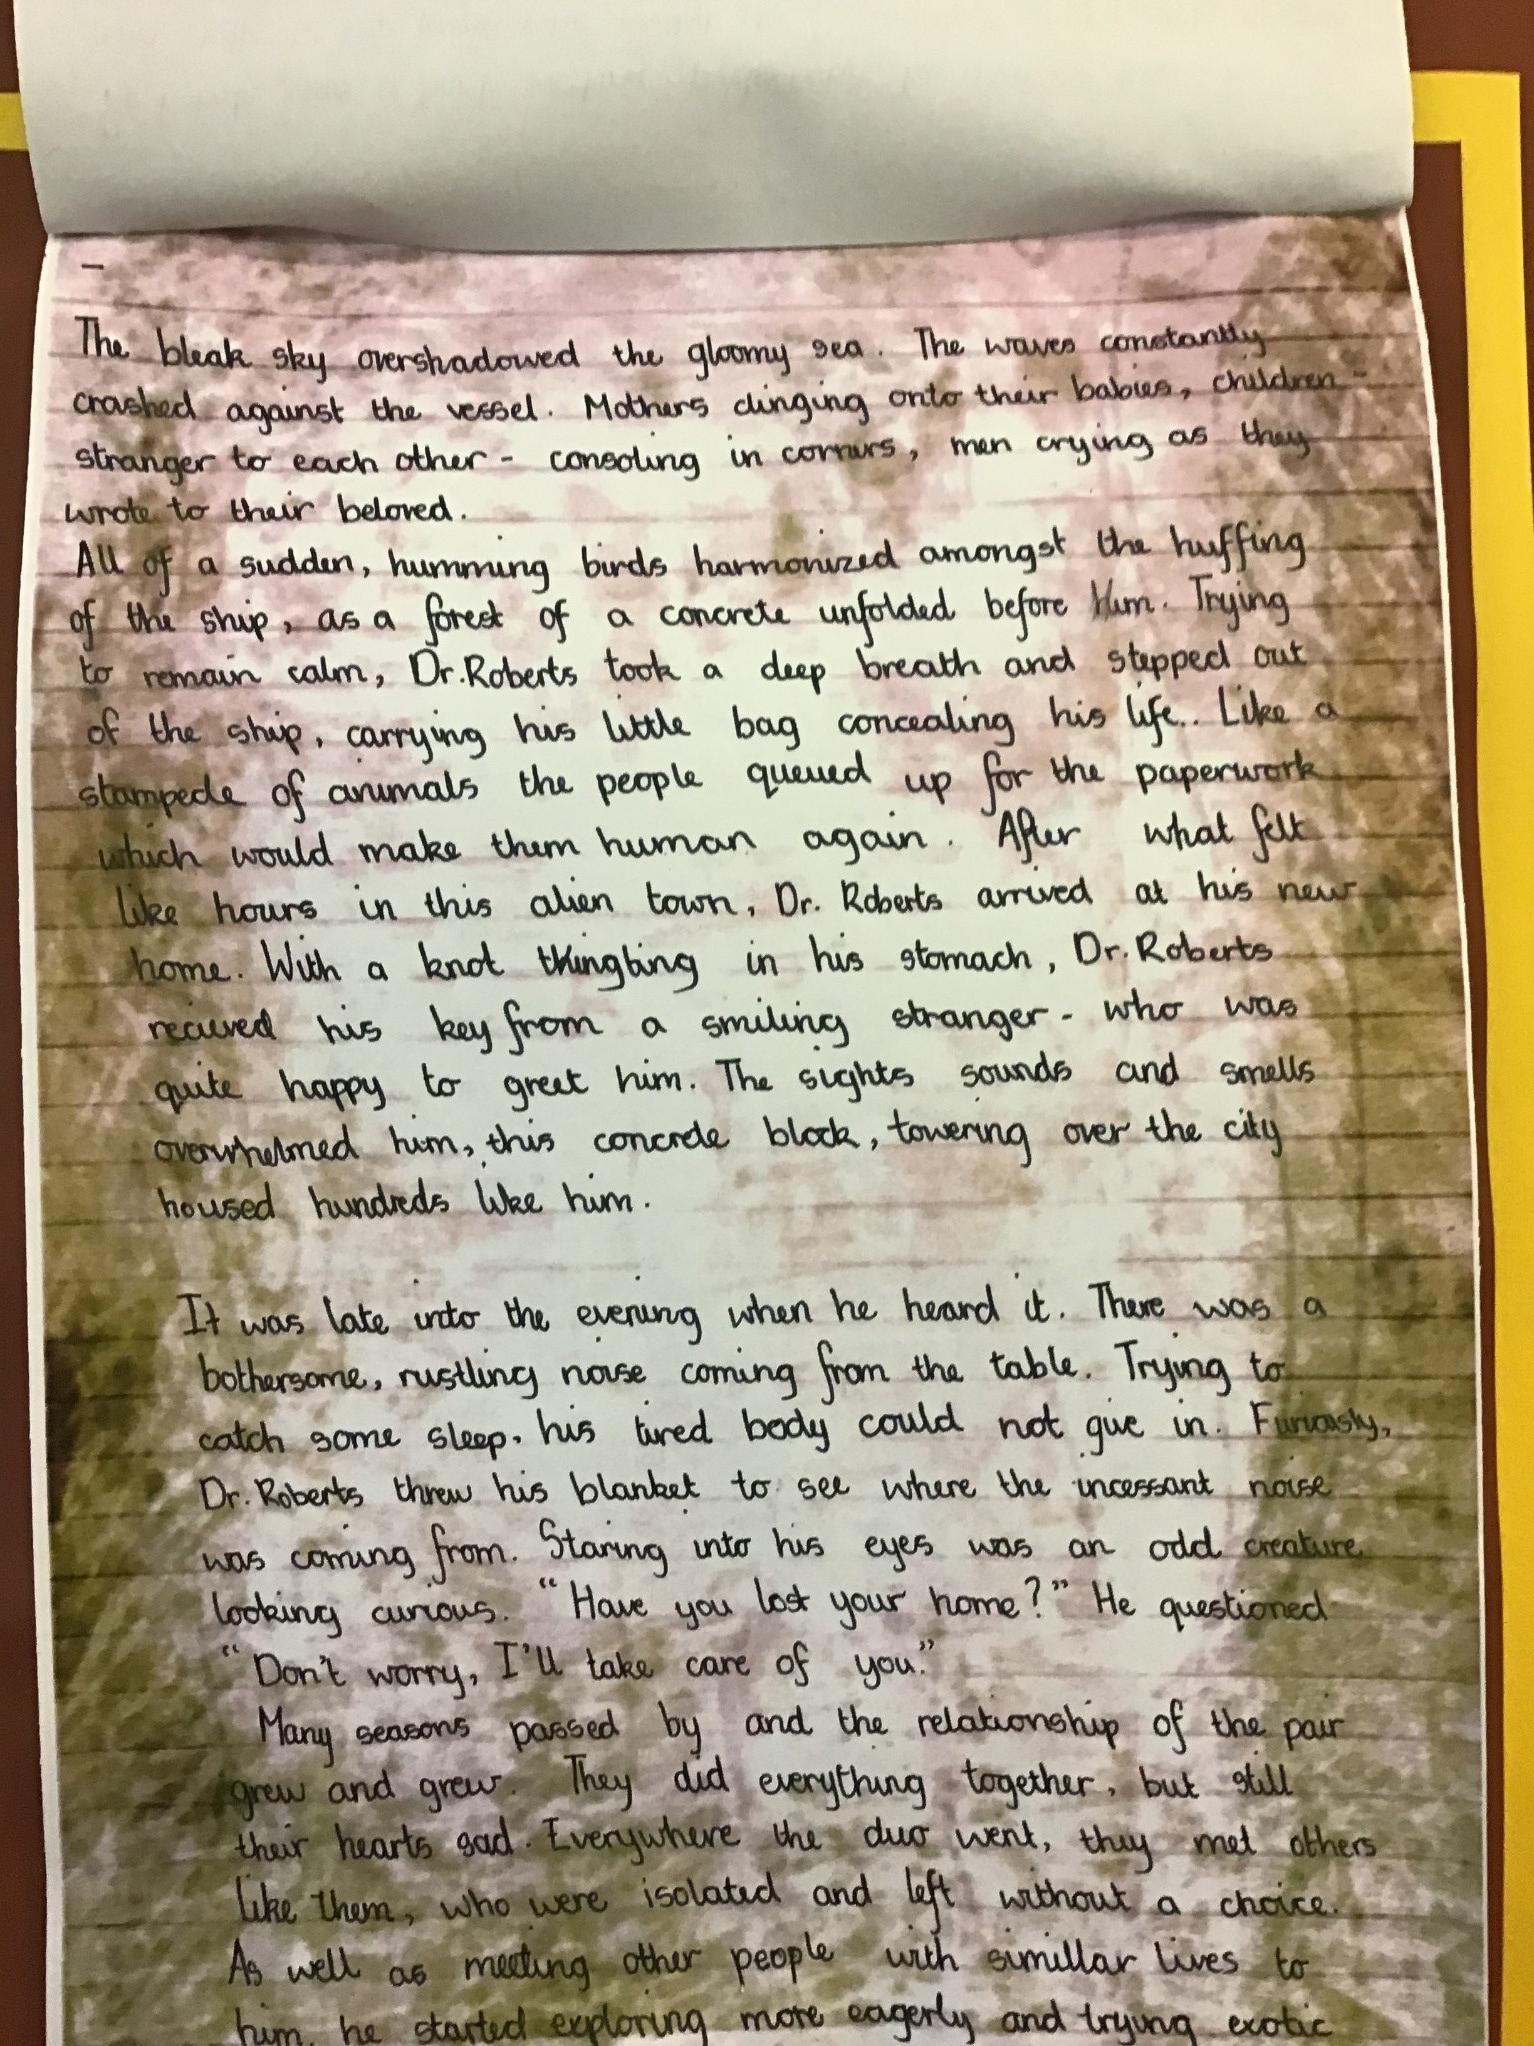 The bleak sky overshadowed the gloomy sea. The waves constantly
crashed against the vessel. Mothers clinging onto their babies, children -
stranger to each other - consoling in corners, men crying as they
wrote to their beloved.
All of a sudden, humming birds harmonized amongst the huffing
of the ship, as a forest of a concrete unfolded before him. Trying
to remain calm, Dr.Roberts took a deep breath and stepped out
of the ship, carrying his little bag concealing his life.. Like a
stampede of animals the people queued up for the paperwork
which would make them human again. After what felt
like hours in this alien town, Dr. Roberts arrived at his new
home. With a knot in his stomach, Dr.Roberts
recieved his key from a smiling stranger - who was
quite happy to greet him. The sights sounds and smells
overwhelmed him, this concrete block, towering over the city
housed hundreds like him.
It was late into the evening when he heard it. There was a
bothersome, rustling noise coming from the table. Trying to
catch some sleep, his tired body could not give in. Furiously,
Dr.Roberts threw his blanket to see where the incessant noise
was coming from. Staring into his eyes was an odd creature
looking curious. "Have you lost your home?" He questioned
"Don't worry, I'll take care of you."
Many seasons passed by and the relationship of the pair
grew and grew. They did everything together, but still
their hearts sad. Everywhere the duo went, they met others
like them, who were isolated and left without a choice.
As well as meeting other people with simillar lives to
him, he started exploring more eagerly and trying exotic